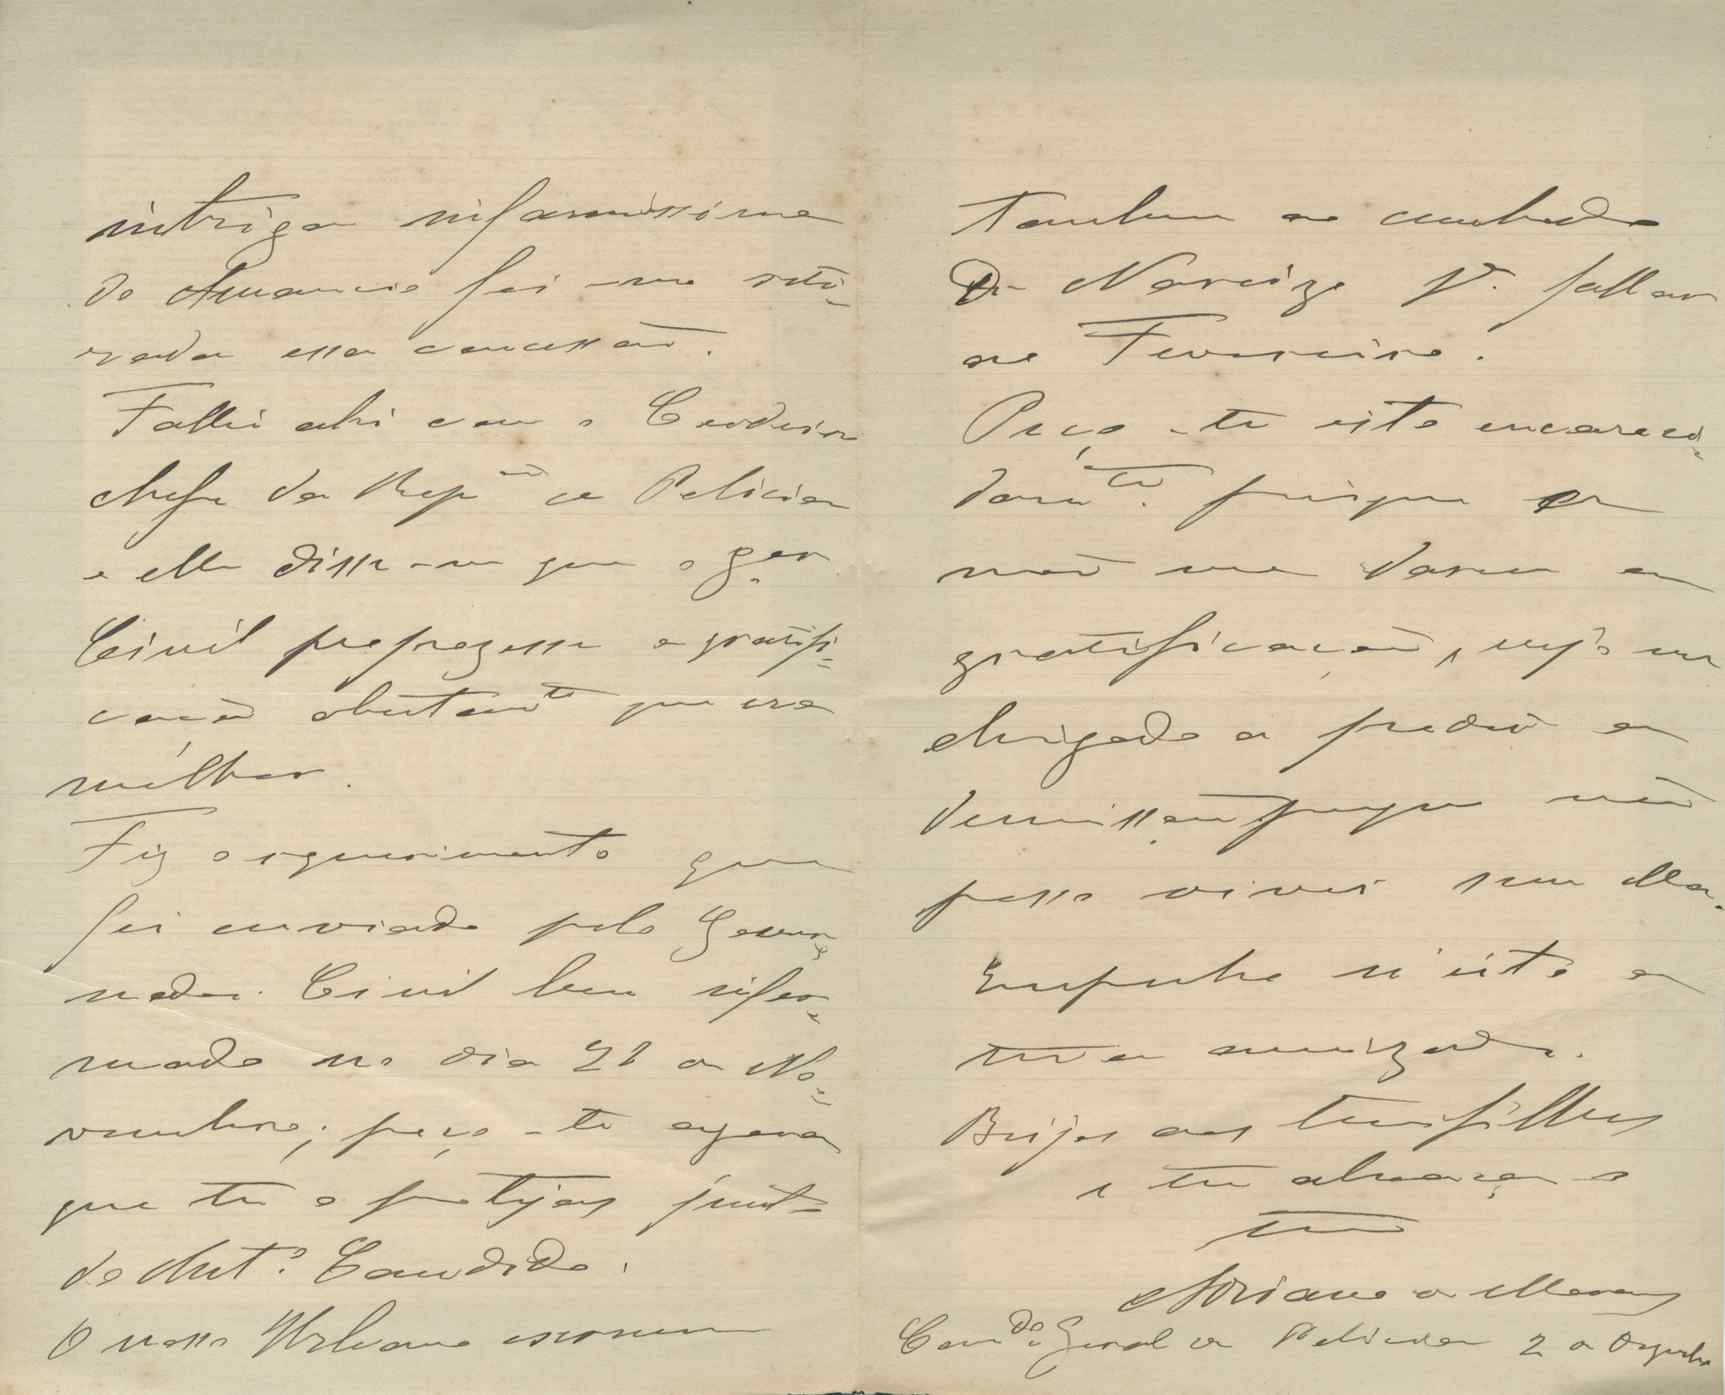 intriga infamissima
do Amancio foi-me reti-
rada essa concessão.
Fallei ahi com o Cordeiro
chefe da Rep.ão de Policia
e elle disse-me que o gov.
Civil propozesse a gratifi-
cação que era
melhor.
Fiz o requerimento que
foi enviado pelo Gover-
nador Civil bem infor-
mado no dia 21 de No-
vembro; peço-te agora
que tu o protejas junto
do Ant.º Candido.
O nosso Urbano escreveu
tambem ao cunhado
Dr Narcizo p.ª fallar
ao Ferreira.
Peço-te isto encareci-
dam.te porque se
não me darem a
gratificação, vejo-me
obrigado a pedir a
demissão porque não
posso viver sem ella.
Empenha n'isto a
tua amizade.
Beijos aos teus filhos
e tu abraça o
teu
Adriano de
Com.do Geral de Policia 2 de